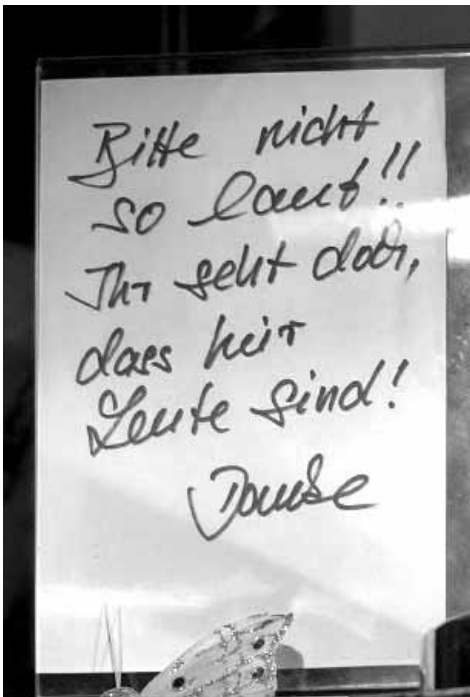 Bitte nicht
so laut!!
Ihr seht doch,
dass hier
Leute sind!
Danke